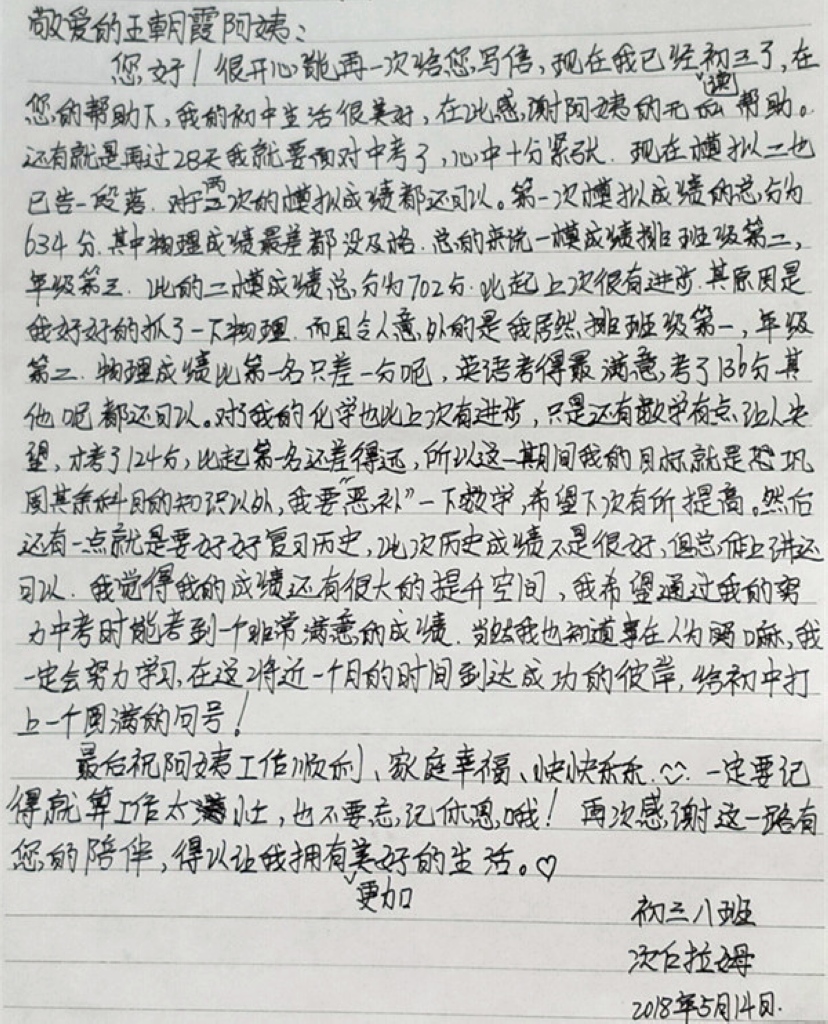 敬爱的王朝霞阿姨：
您好！很开心能再一次给您写信，现在我已经读初三了，在
您的帮助下，我的初中生活很美好，在此感谢阿姨的无私帮助。
还有就是再过28天我就要面对中考了，心中十分紧张．现在模拟二也
已告一段落．对于两次的模拟成绩都还可以。第一次模拟成绩的总分为
634分．其中物理成绩最差都没及格．总的来说一模成绩排班级第二，
年级第三．此的二模成绩总分为702分．比起上次很有进步．其原因是
我好好的抓了一下物理．而且令人意外的是我居然排班级第一，年级
第二．物理成绩比第一名只差一分呢，英语考得最满意，考了136分．其
他呢都还可以。对了我的化学也比上次有进步，只是还有数学有点让人失
望，才考了124分，比起第一名还差得远，所以这一期间我的目标就是巩
固其余科目的知识以外，我要“恶补”一下数学，希望下次有所提高。然后
还有一点就是要好好复习历史，此次历史成绩不是很好，但总体上讲还
可以．我觉得我的成绩还有很大的提升空间，我希望通过我的努
力中考时能考到一个非常满意的成绩．当然我也知道事在人为嘛，我
一定会努力学习，在这将近一个月的时间到达成功的彼岸，给初中打
上一个圆满的句号！
最后祝阿姨工作顺利、家庭幸福、快快乐乐．一定要记
得就算工作太忙，也不要忘记休息哦！再次感谢这一路有
您的陪伴，得以让我拥有更加美好的生活。♡
初三八班
次仁拉姆
2018年5月14日．